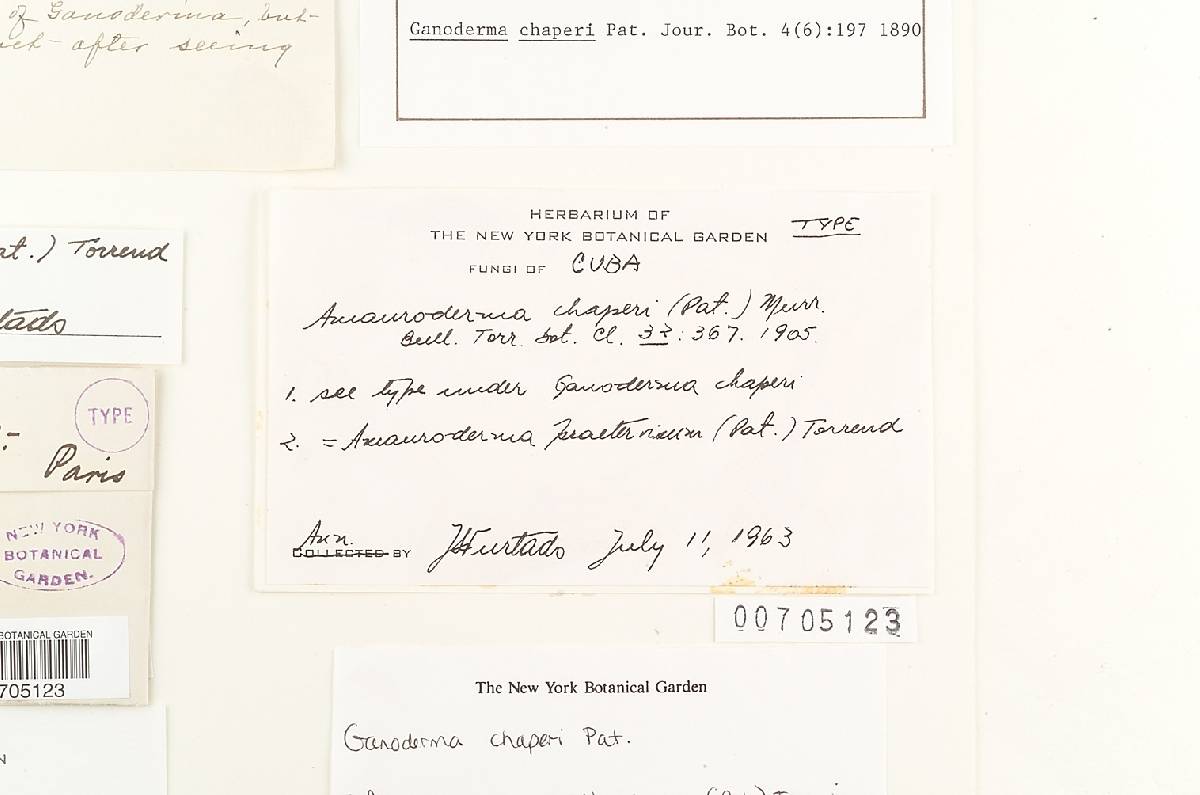 of Ganoderma, but-
after seeing
Ganoderma chaperi Pat. Jour. Bot. 4(6):197 1890
at.) Torrend
tado
TYPE
Paris
NEW YORK
BOTANICAL
GARDEN.
BOTANICAL GARDEN
705123
N
HERBARIUM OF
THE NEW YORK BOTANICAL GARDEN
TYPE
FUNGI OF CUBA
Amauroderma chaperi (Pat.) Murr.
Bull. Torr. bot. Cl. 32:367. 1905.
1. see type under Ganoderma chaperi
2. = Amauroderma praetervisum (Pat.) Torrend
Ann.
COLLECTED BY JSFurtado July 11, 1963
00705123
The New York Botanical Garden
Ganoderma chaperi Pat.